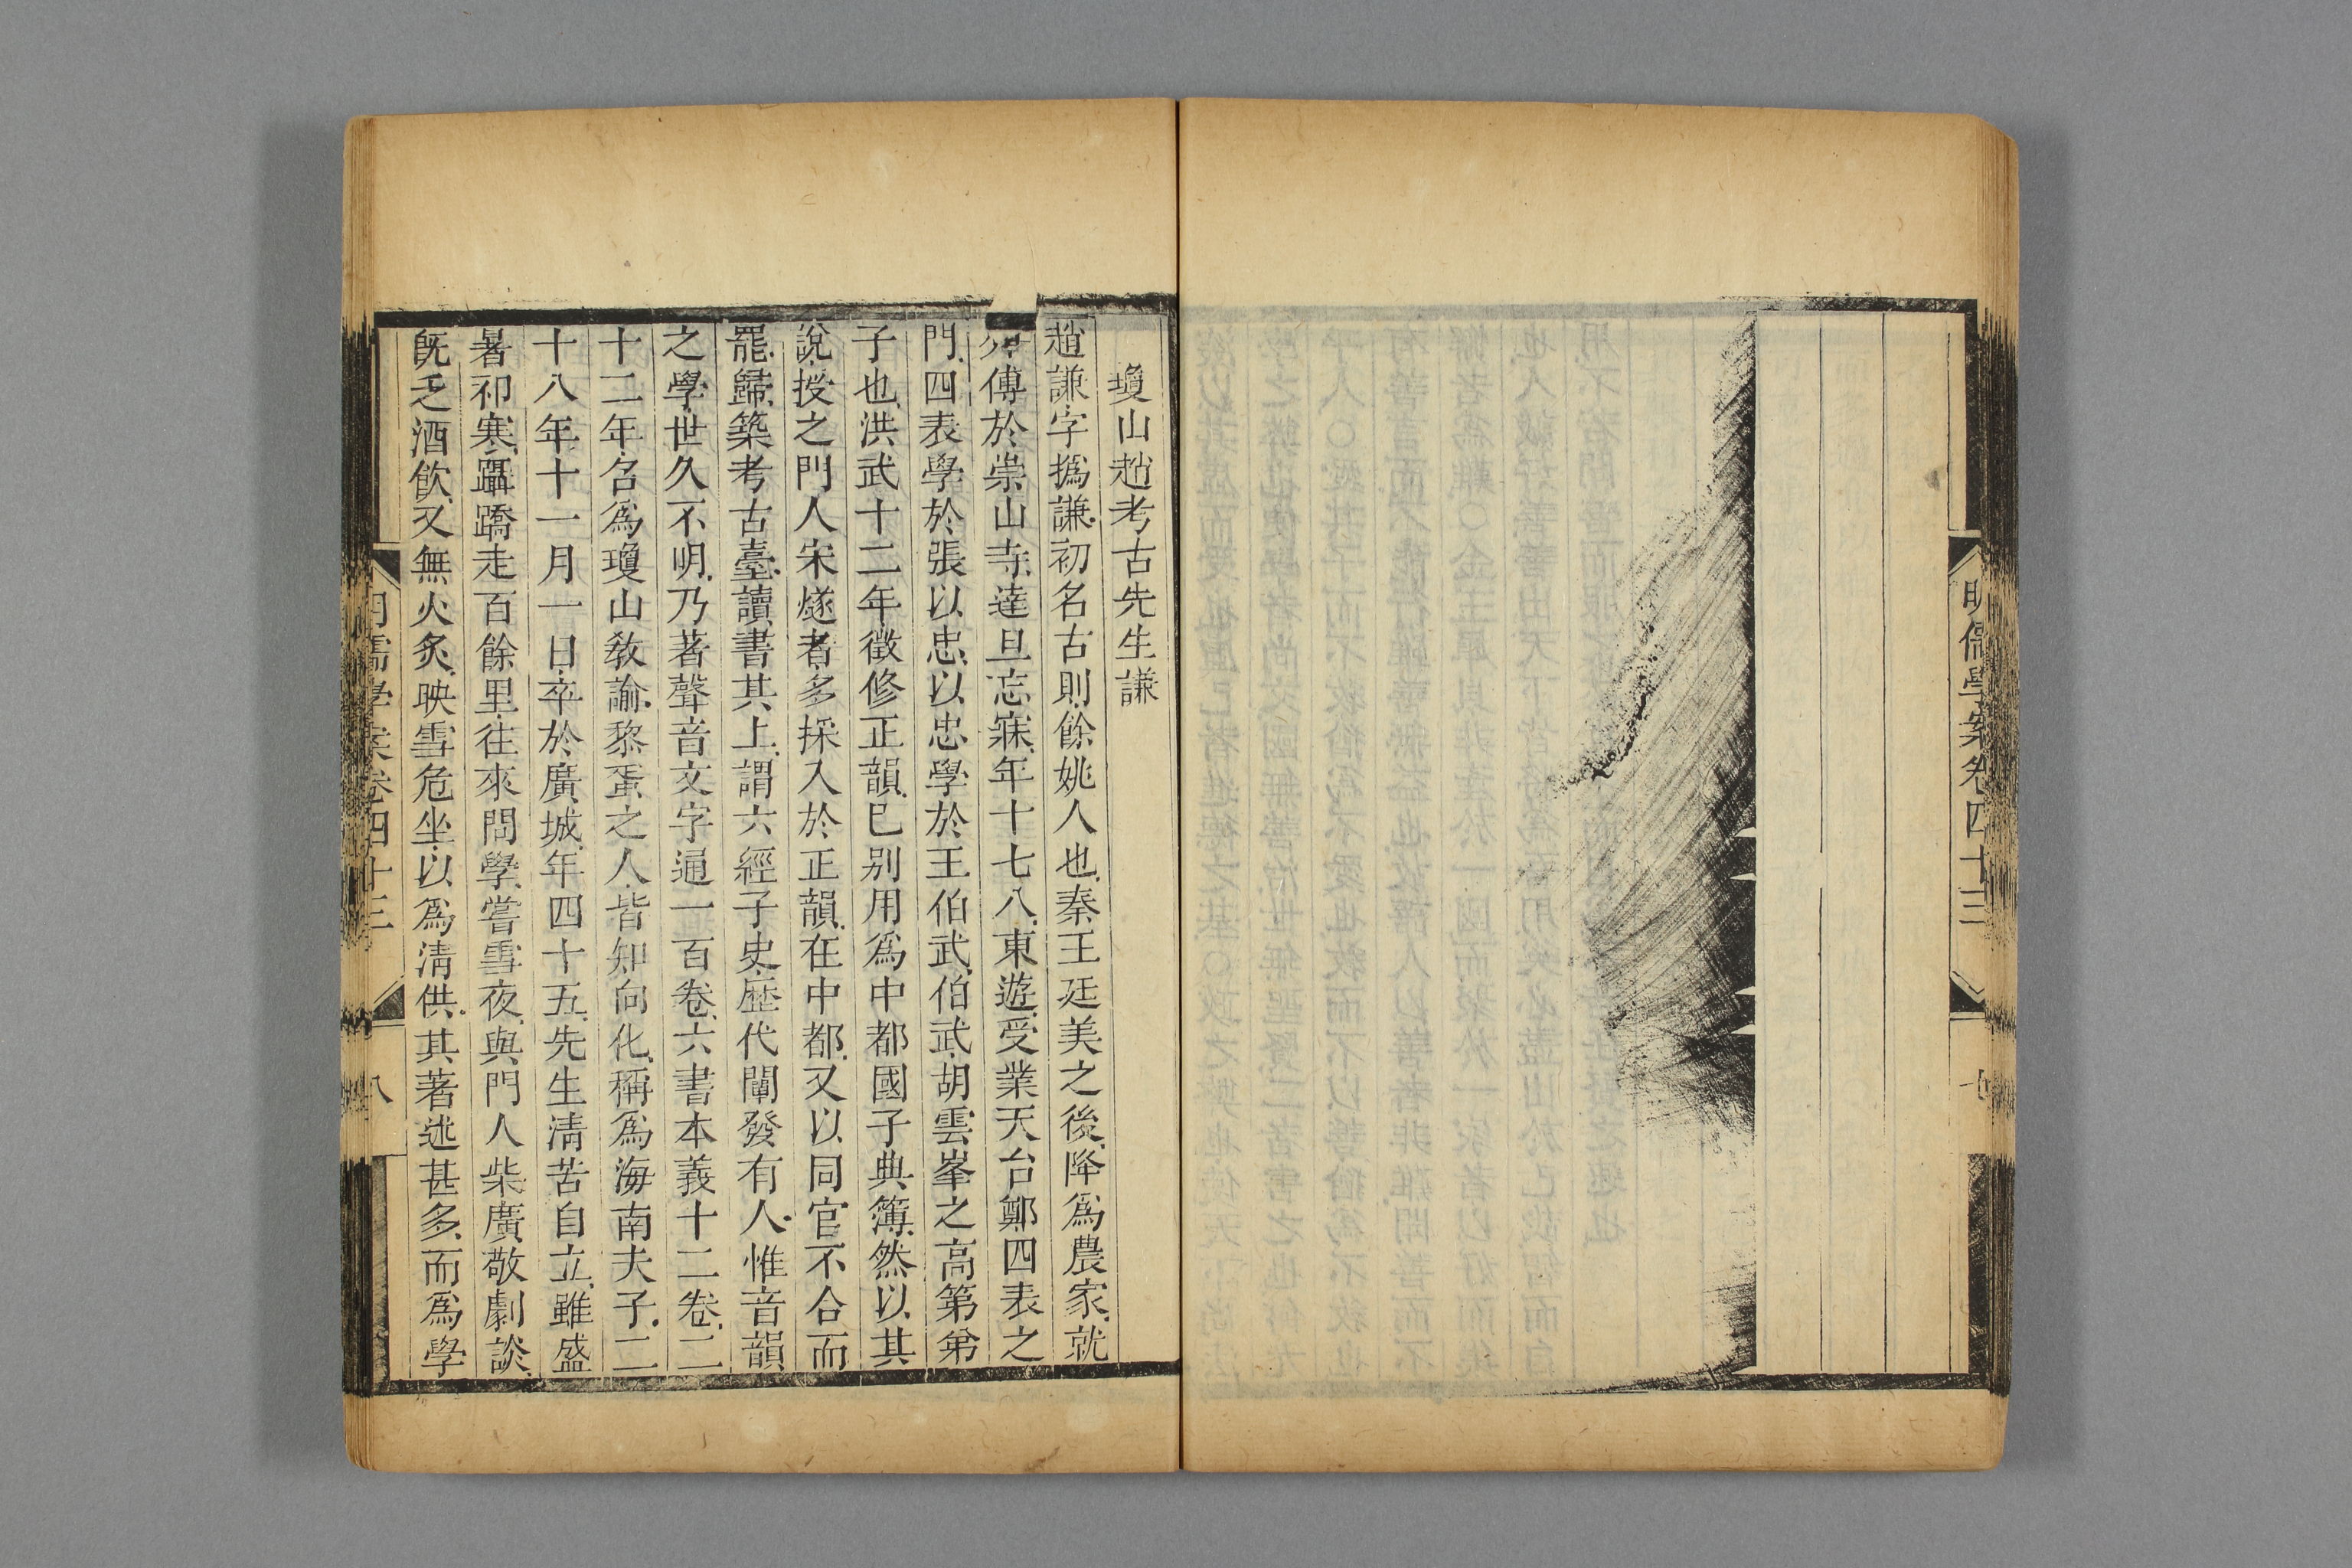 明儒學案卷四十三
七
瓊山趙考古先生謙
趙謙字撝謙初名古則餘姚人也秦王廷美之後降爲農家就
外傅於崇山寺達旦忘寐年十七八東遊受業天台鄭四表之
門四表學於張以忠以忠學於王伯武伯武胡雲峯之高第弟
子也洪武十二年徵修正韻已别用爲中都國子典簿然以其
說授之門人宋燧者多採入於正韻在中都又以同官不合而
罷歸築考古臺讀書其上謂六經子史歷代闡發有人惟音韻
之學世久不明乃著聲音文字通一百卷六書本義十二卷二
十二年召爲瓊山教諭黎蛋之人皆知向化稱爲海南夫子二
十八年十一月一日卒於廣城年四十五先生清苦自立雖盛
暑祁寒躡蹻走百餘里往來問學嘗雪夜與門人柴廣敬劇談
旣乏酒飲又無火炙映雪危坐以爲清供其著述甚多而爲學
明儒學案卷四十三
八